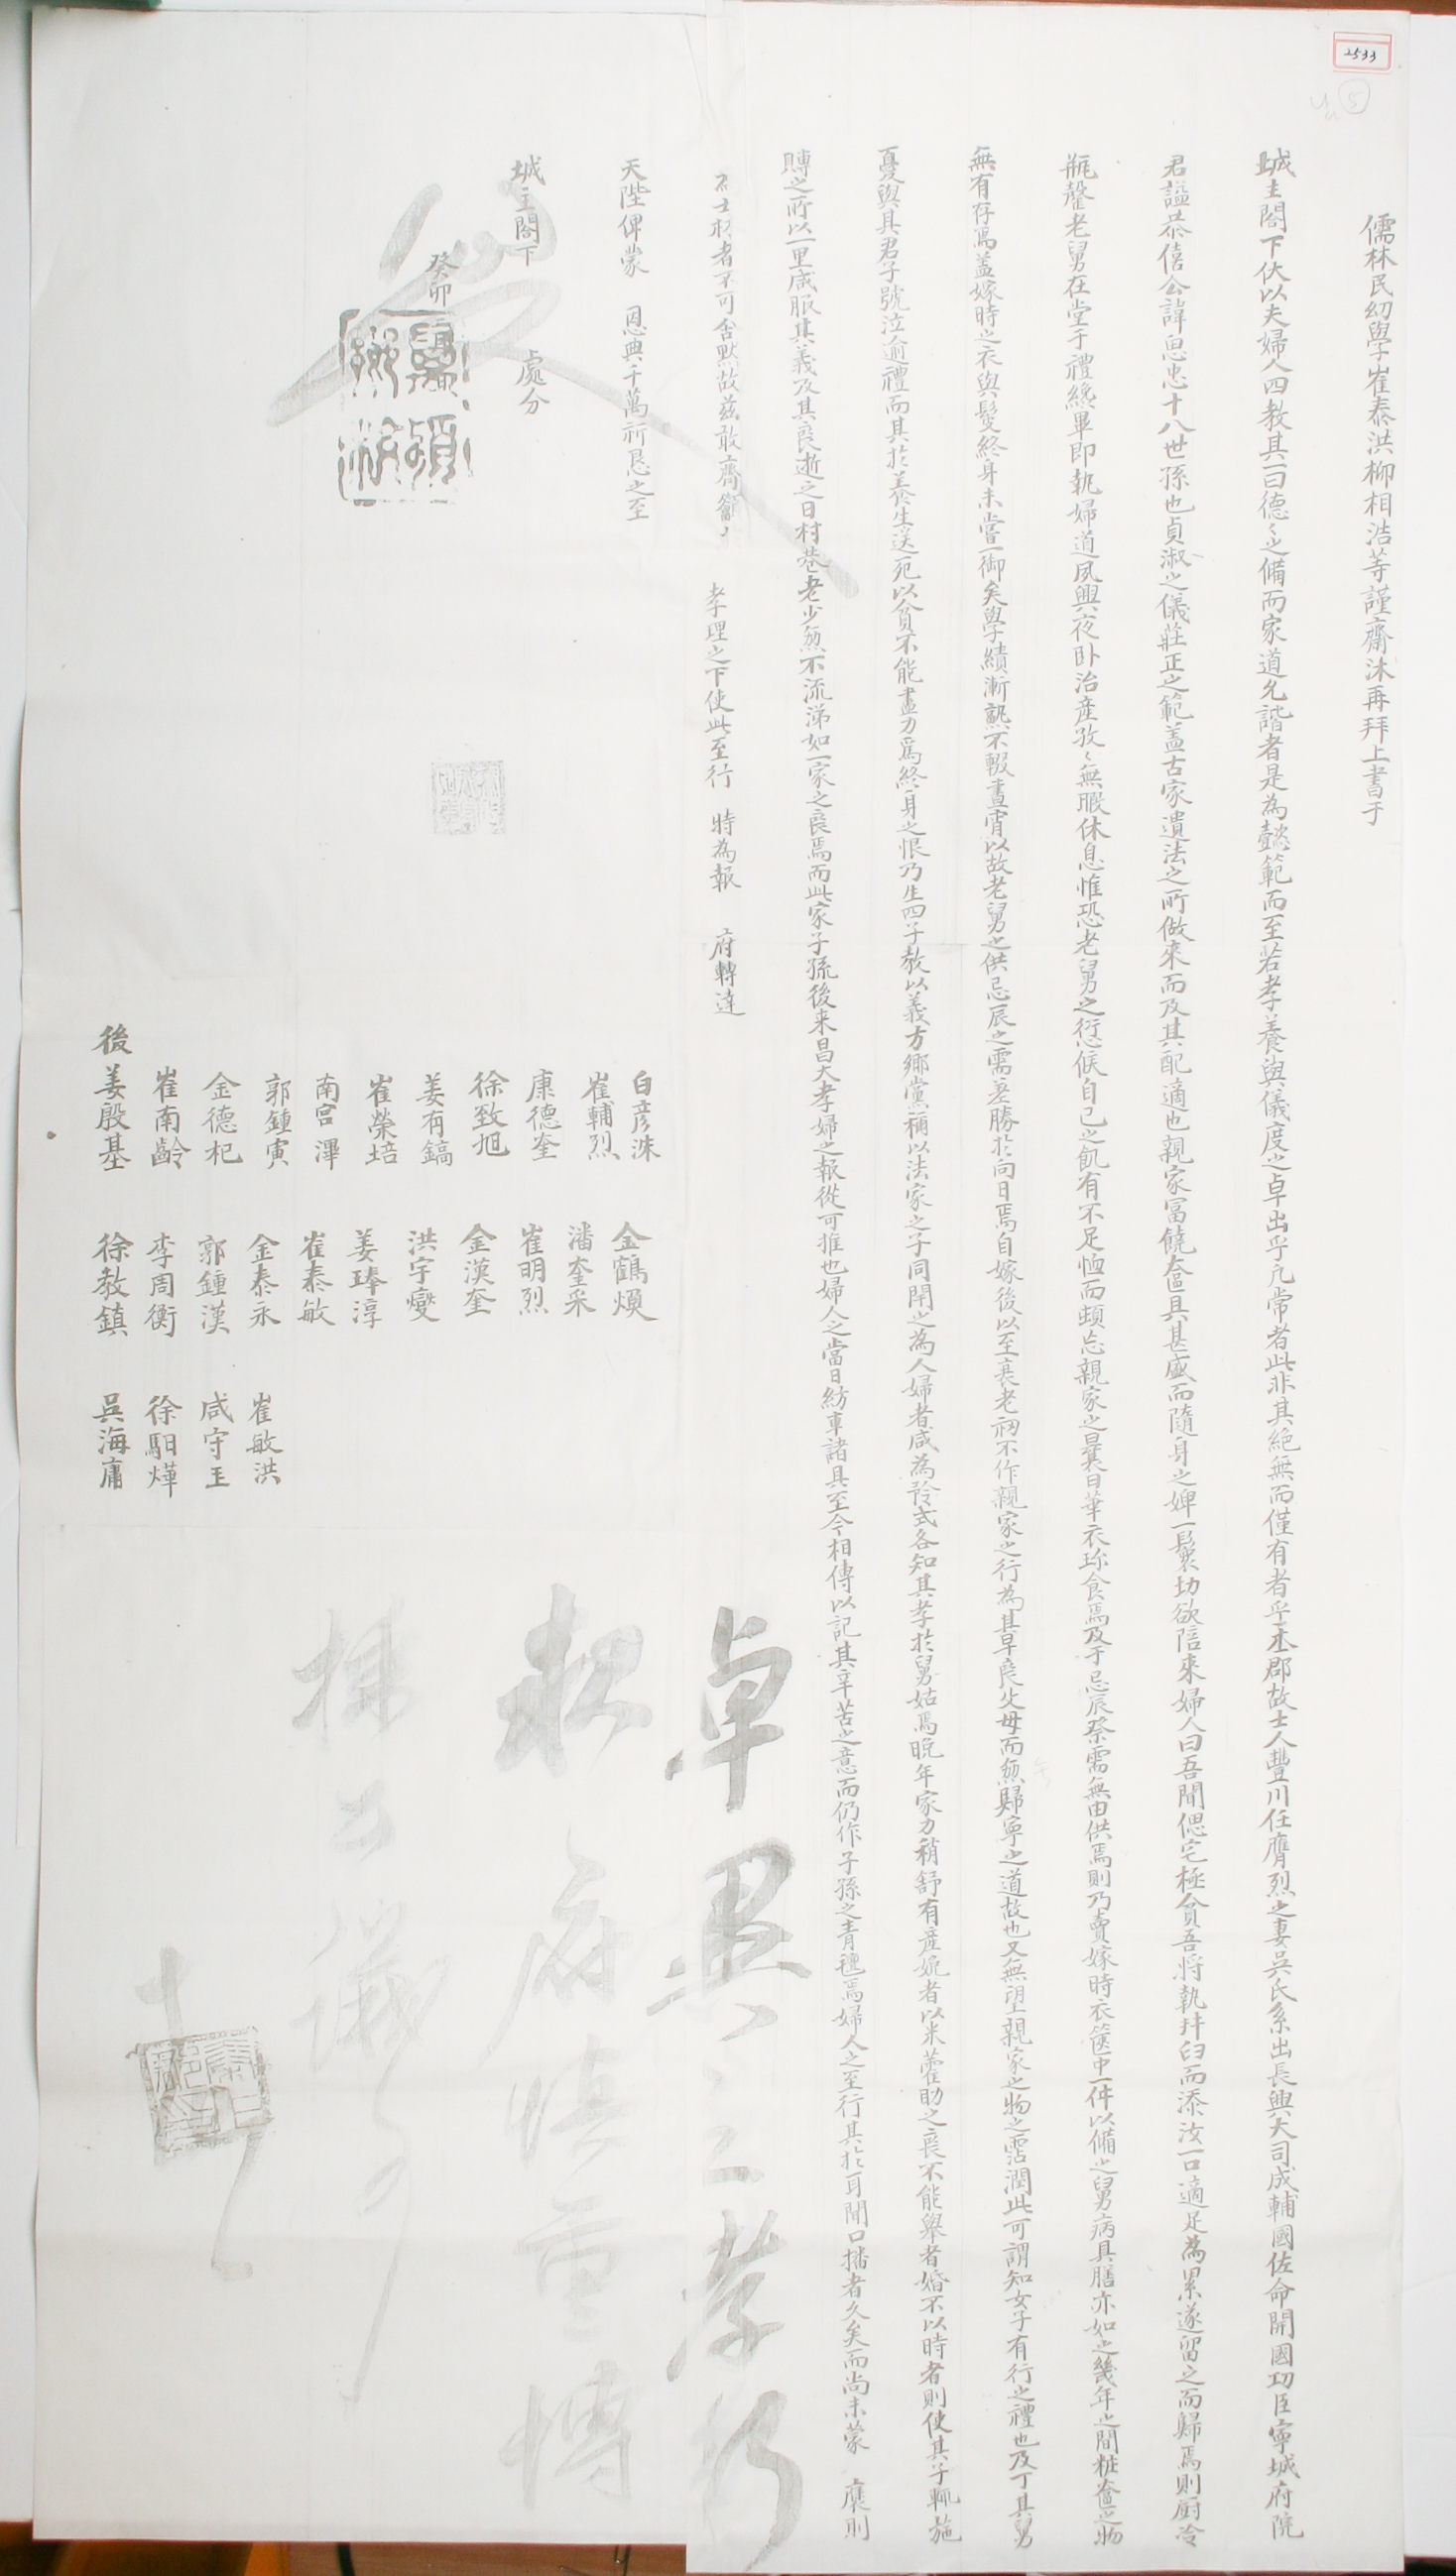 2533
5
儒林民幼學崔泰洪柳相浩等謹齋沐再拜上書于
城主閤下伏以夫婦人四教其一曰德〻之備而家道允諧者是為懿範而至若孝養與儀度之卓出乎凡常者此非其絶無而僅有者乎本郡故士人豐川任膺烈之妻吳氏系出長興大司成輔國佐命開國功臣寧城府院
君諡恭僖公諱思忠十八世孫也貞淑之儀莊正之範盖古家遺法之所做來而及其配適也親家冨饒奩具甚盛而隨身之婢一鬟切欲陪來婦人曰吾聞偲宅極貧吾將執井臼而添汝一口適足為累遂留之而歸焉則厨冷
瓶罄老舅在堂于禮纔畢即執婦道夙興夜卧治產孜〻無暇休息惟恐老舅之愆候自己之飢有不足恤而頓忘親家之曩日華衣珎食焉及于忌辰祭需無由供焉則乃賣嫁時衣篋中一件以備之舅病具膳亦如之幾年之間粧奩之物
無有存焉盖嫁時之衣與髢終身未嘗一御矣學績漸熟不輟晝宵以故老舅之供忌辰之需差勝於向日焉自嫁後以至衰老初不作親家之行為其早喪父母而無歸寧之道故也又無望親家之物之霑潤此可謂知女子有行之禮也及丁其舅
憂與其君子號泣逾禮而其於養生送死以貧不能盡力爲終身之恨乃生四子教以義方鄉黨稱以法家之子同閈之為人婦者咸為矜式各知其孝於舅姑焉晚年家力稍舒有產娩者以米藿助之喪不能舉者婚不以時者則使其子輒施
賻之所以一里咸服其義及其喪逝之日村巷老少無不流涕如一家之喪焉而此家子孫後来昌大孝婦之報從可推也婦人之當日紡車諸具至今相傳以記其辛苦之意而仍作子孫之青氊焉婦人之至行其於耳聞口播者久矣而尚未蒙 褒則
為士林者不可含默故茲敢齊籲 孝理之下使此至行 特為報 府轉達
天陛俾蒙 恩典千萬祈恳之至
城主閤下 處分
癸卯
白彦洙 金鶴煥
崔輔烈 潘奎采
康德奎 崔明烈
徐致旭 金漢奎
姜有鎬 洪宇燮
崔榮培 姜琫淳
南宮濢 崔泰敏
郭鍾寅 金泰永 崔敏洪
金德杞 郭鍾漢 咸守王
崔南齡 李周衡 徐馹燁
後 姜殷基 徐教鎮 吳海庸
卓異之孝行
報府